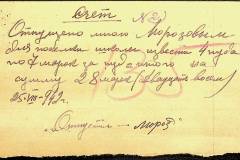 Счет №2
Отпущено мною Морозовым
для поселка школы извести 4 пуда
по 7 марок за пуд всего на
сумму 28 марок (двадцать восем)
25-VIII-942 г.
"Отпустил – Мороз"